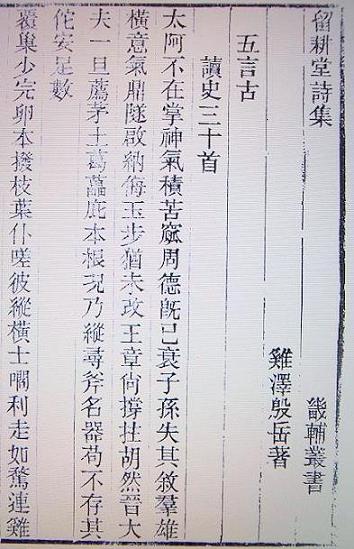 留耕堂詩集　畿輔叢書
雞澤殷岳著
五言古
讀史三十首
太阿不在掌神氣積苦窳周德既已衰子孫失其敘羣雄
橫意氣鼎隧啟納侮玉步猶未改王章尚撐拄胡然晉大
夫一旦薦茅土葛藟庇本根況乃縱尋斧名器苟不存其
佗安足數
覆巢少完卵本撥枝葉仆嗟彼縱橫士嚪利走如騖連雞